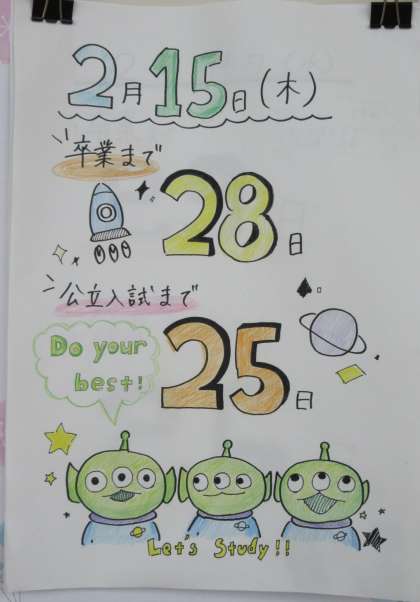 2月15日(木)
卒業まで
28日
公立入試まで
Do your
best!
25日
Let's Study!!